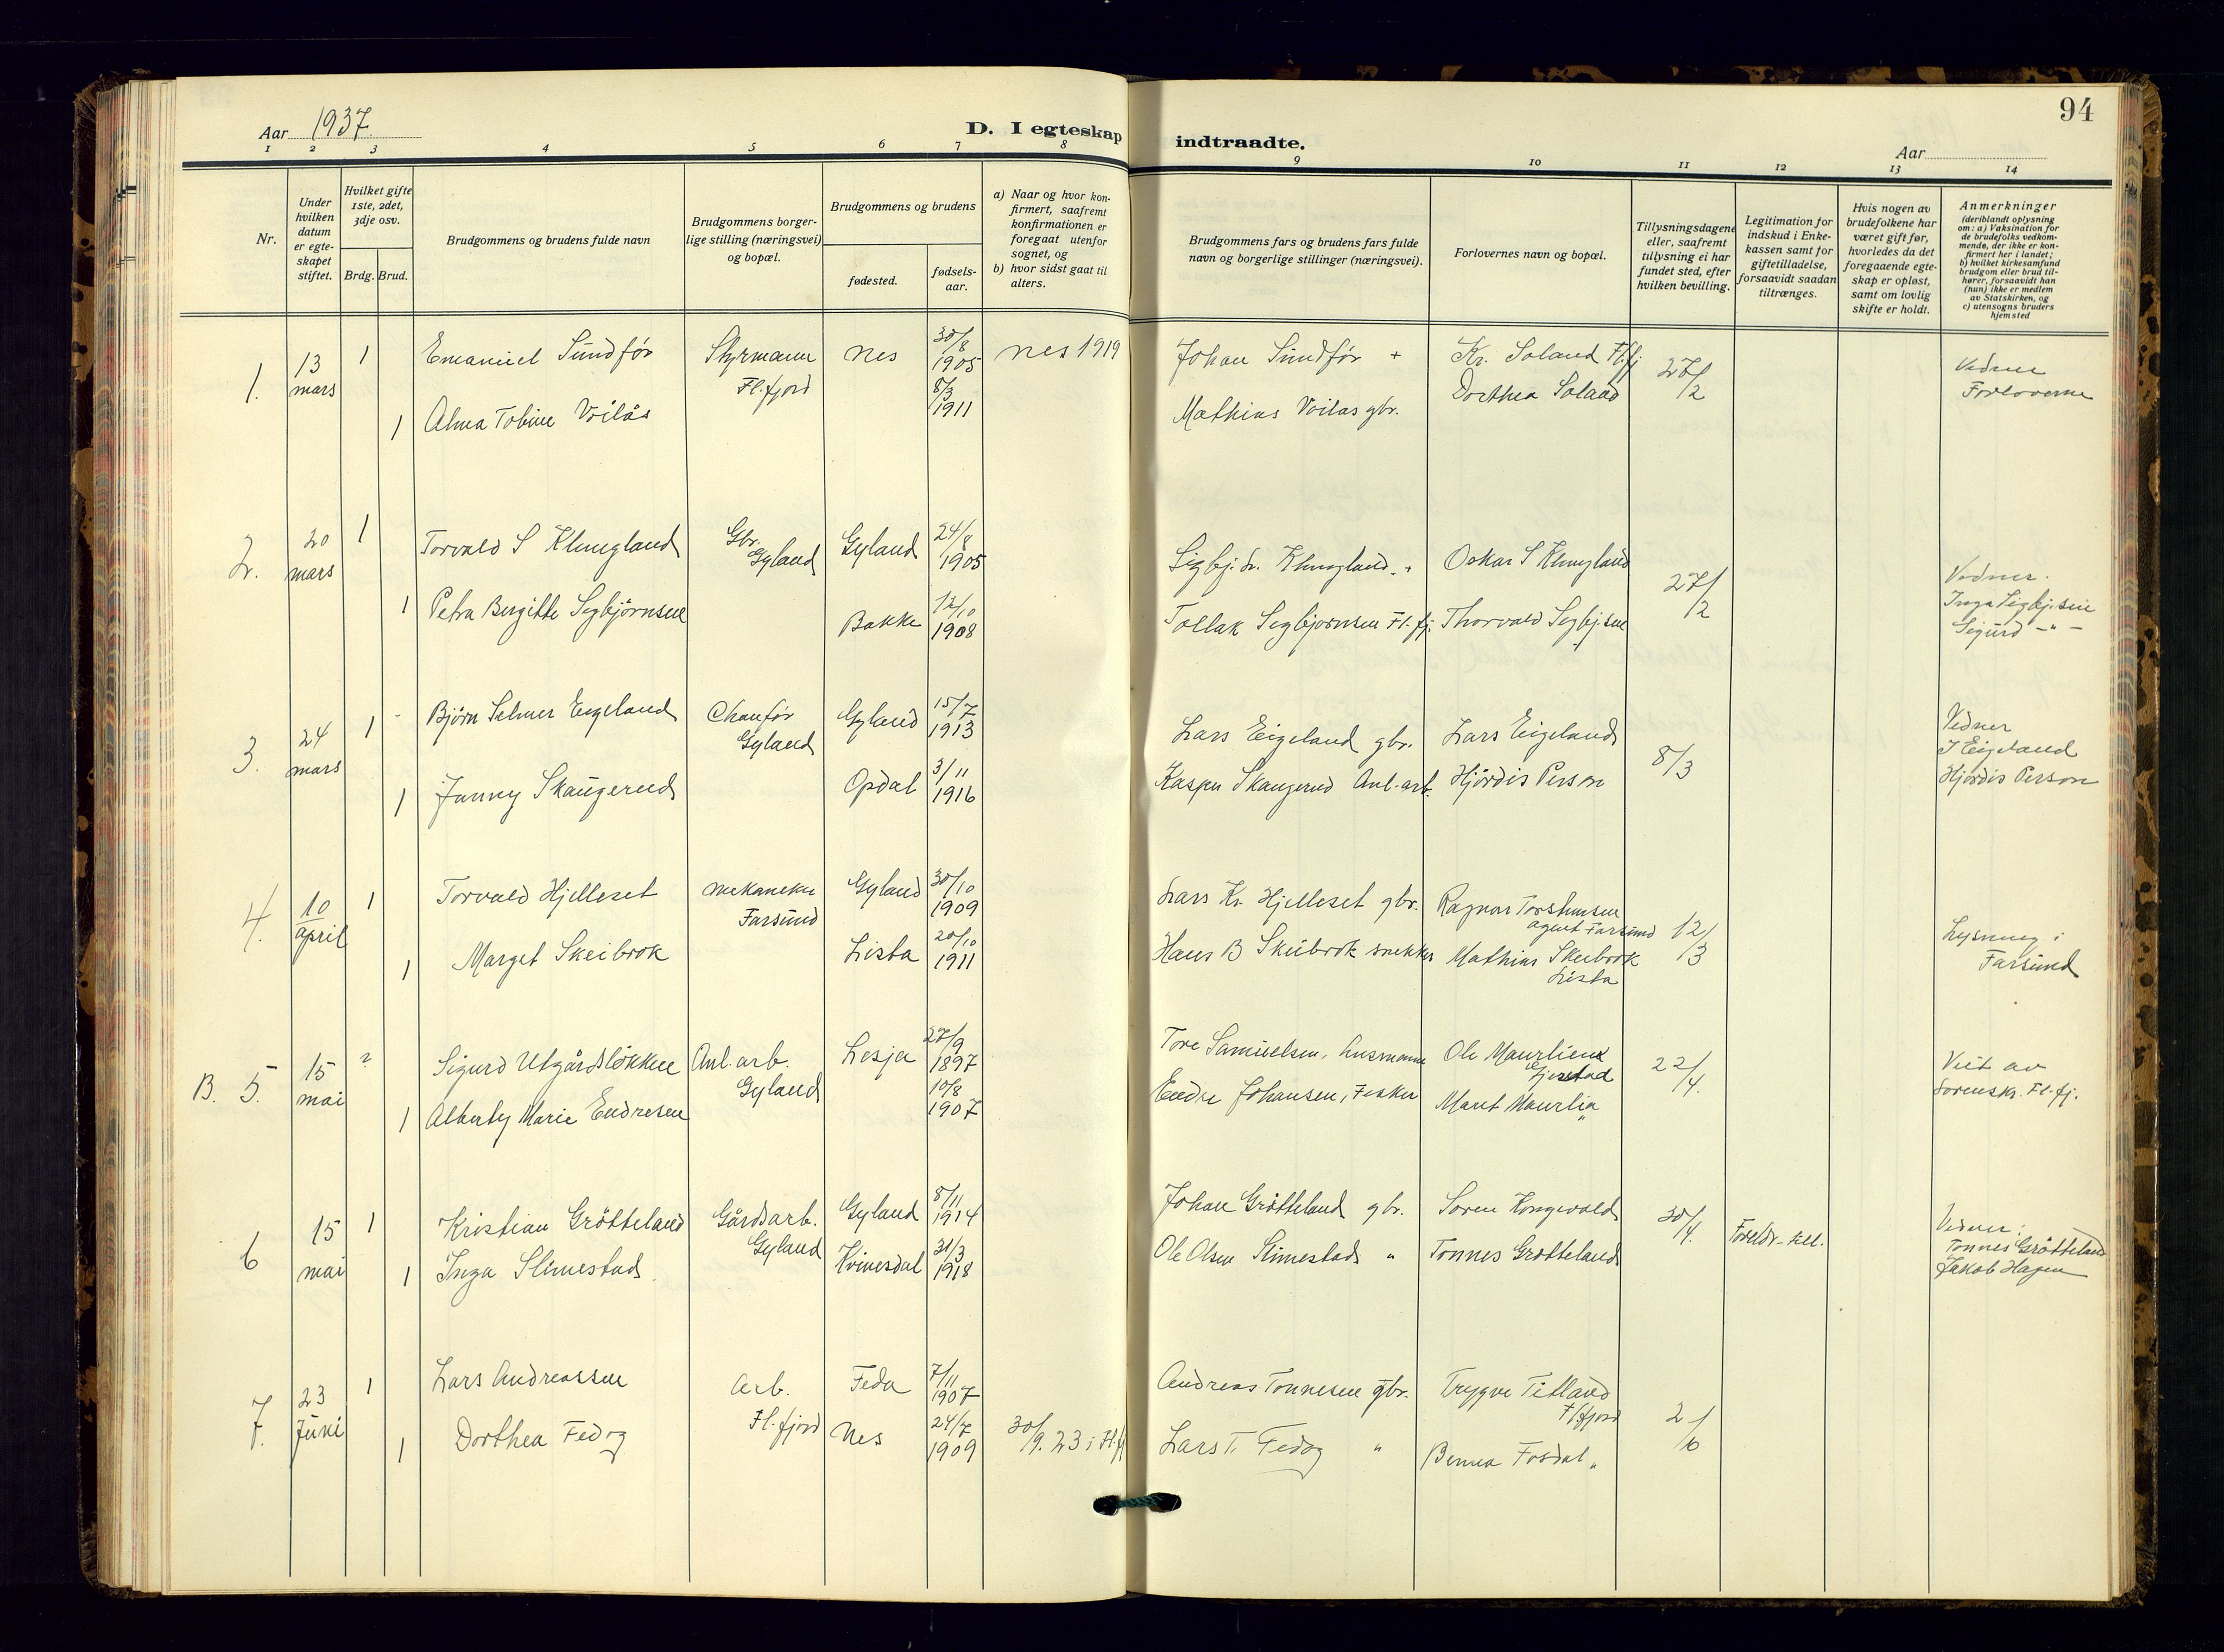 94
Aar 1937.
D. I egteskap indtraadte.
Aar
1 2 3 4 5 6 7 8 9 10 11 12 13 14
Nr.
Under hvilken datum er egteskapet stiftet.
Hvilket gifte 1ste, 2det, 3dje osv.
Brdg. Brud.
Brudgommens og brudens fulde navn
Brudgommens borgerlige stilling (næringsvei) og bopæl.
Brudgommens og brudens
fødested.
fødselsaar.
a) Naar og hvor konfirmert, saafremt konfirmationen er foregaat utenfor sognet, og
b) hvor sidst gaat til alters.
Brudgommens fars og brudens fars fulde navn og borgerlige stillinger (næringsvei).
Forlovernes navn og bopæl.
Tillysningsdagene eller, saafremt tillysning ei har fundet sted, efter hvilken bevilling.
Legitimation for indskud i Enkekassen samt for giftetilladelse, forsaavidt saadan tiltrænges.
Hvis nogen av brudefolkene har været gift før, hvorledes da det foregaaende egteskap er opløst, samt om lovlig skifte er holdt.
Anmerkninger
(deriblandt oplysning om: a) Vaksination for de brudefolks vedkommende, der ikke er konfirmert her i landet; b) hvilket kirkesamfund brudgom eller brud tilhører, forsaavidt han (hun) ikke er medlem av Statskirken, og c) utensogns bruders hjemsted
1. 13 mars 1 Emanuel Sundfør Styrmann Fl.fjord Nes 30/8 1905 Nes 1919 Johan Sundfør + Kr. Soland Fl.fj 27/2 Vidner Forloverne
1 Alma Tobine Voilås 8/3 1911 Mathias Voilas gbr. Dorthea Soland
2. 20 mars 1 Torvald S Klungland Gbr. Gyland Gyland 24/8 1905 Sigbj. S. Klungland + Oskar S Klungland 27/2 Vidner. Inga Sigbj.sen Sigurd -"-
1 Petra Bergitte Segbjørnsen Bakke 12/10 1908 Tollak Segbjornsen Fl.fj. Thorvald Segbj.sen
3. 24 mars 1 Bjørn Selmer Eigeland Chauför Gyland Gyland 15/7 1913 Lars Eigeland gbr. Lars Eigeland 8/3 Vidner J Eigeland Hjördis Person
1 Jenny Skaugerud Opdal 3/11 1916 Kasper Skaugerud Anl.arb. Hjördis Person
4. 10 april 1 Torvald Hjelleset mekaneker Farsund Gyland 30/10 1909 Lars Kr. Hjelleset gbr. Ragnar Torstensen agent Farsund 12/3 Lysning i Farsund
1 Marget Skeibrok Lista 20/10 1911 Hans B Skeibrok snekker Mathias Skeibrok Lista
B. 5. 15 mai ? Sigurd Utgårdsløkken Anl. arb. Gyland Lesja 27/9 1897 Tore Samuelsen, husmann Ole Maurlien Gjerstad 22/4. Viet av Sorenskr. Fl.fj.
1 Alberty Marie Endresen 10/8 1907 Endre Johansen, Fesker Marit Maurlia "
6 15 mai 1 Kristian Grötteland Gårdsarb. Gyland Gyland 8/11 1914 Johan Grötteland gbr. Soren Kongevold 30/4. Foreldr.-till. Vidner: Tonnes Grötteland Jakob Hagen
1 Inga Slimestad Kvinesdal 31/3 1918 Ole Olsen Slimestad " Tonnes Grotteland
7. 23 Juni 1 Lars Andreassen Arb. Fl.fjord Feda 7/11 1907 Andreas Tonnesen gbr. Trygve Titland Fl.fjord 2/6
1 Dorthea Fedog Nes 24/7 1909 30/9. 23 i Fl.fj Lars T. Fedog " Fosdal "